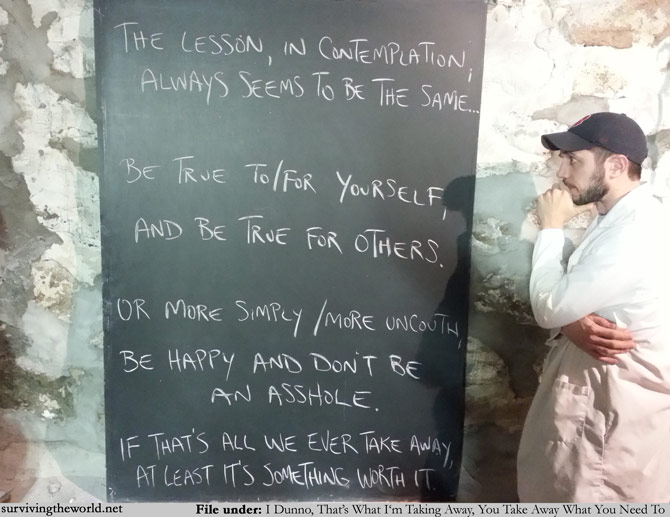 THE LESSON, IN CONTEMPLATION,
ALWAYS SEEMS TO BE THE SAME...
BE TRUE TO/FOR YOURSELF,
AND BE TRUE FOR OTHERS.
OR MORE SIMPLY/MORE UNCOUTH,
BE HAPPY AND DON'T BE
AN ASSHOLE.
IF THAT'S ALL WE EVER TAKE AWAY,
AT LEAST IT'S SOMETHING WORTH IT.
survivingtheworld.net File under: I Dunno, That's What I'm Taking Away, You Take Away What You Need To